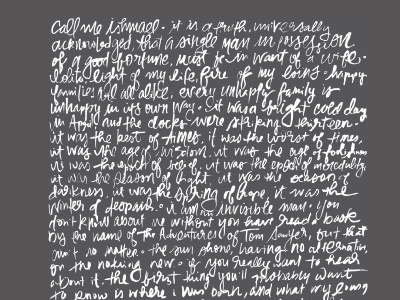 Call me ishmael. it is a truth, universally
acknowledged, that a single man in possession
of a good fortune, must be in want of a wife.
lolita, light of my life, fire of my loins. happy
families are all alike, every unhappy family is
unhappy in its own way. it was a bright cold day
in April, and the clocks were striking thirteen.
it was the best of times, it was the worst of times,
it was the age of wisdom, it was the age of foolishness
it was the epoch of belief, it was the epoch of incredulity,
it was the season of light, it was the season of
darkness, it was the spring of hope, it was the
winter of despair. i am an invisible man. you
don't know about me without you have read a book
by the name of The Adventures of Tom Sawyer, but that
ain't no matter. the sun shone, having no alternative,
on the nothing new. if you really want to hear
about it, the first thing you'll probably want
to know is where i was born, and what my lousy